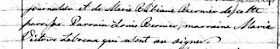 journalier et de Marie Albina Bernier de cette
paroisse. Parrain Louis Bernier, marraine Marie
qui n'ont su signer.